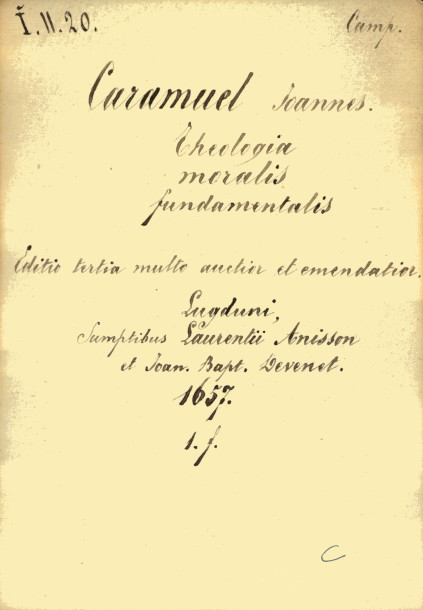 Ĭ. II. 20. Camp.
Caramuel Joannes.
Theologia
moralis
fundamentalis
Editio tertia multo auctior et emendatior.
Lugduni,
Sumptibus Laurentii Anisson
et Joan. Bapt. Devenet.
1657.
1. f.
C